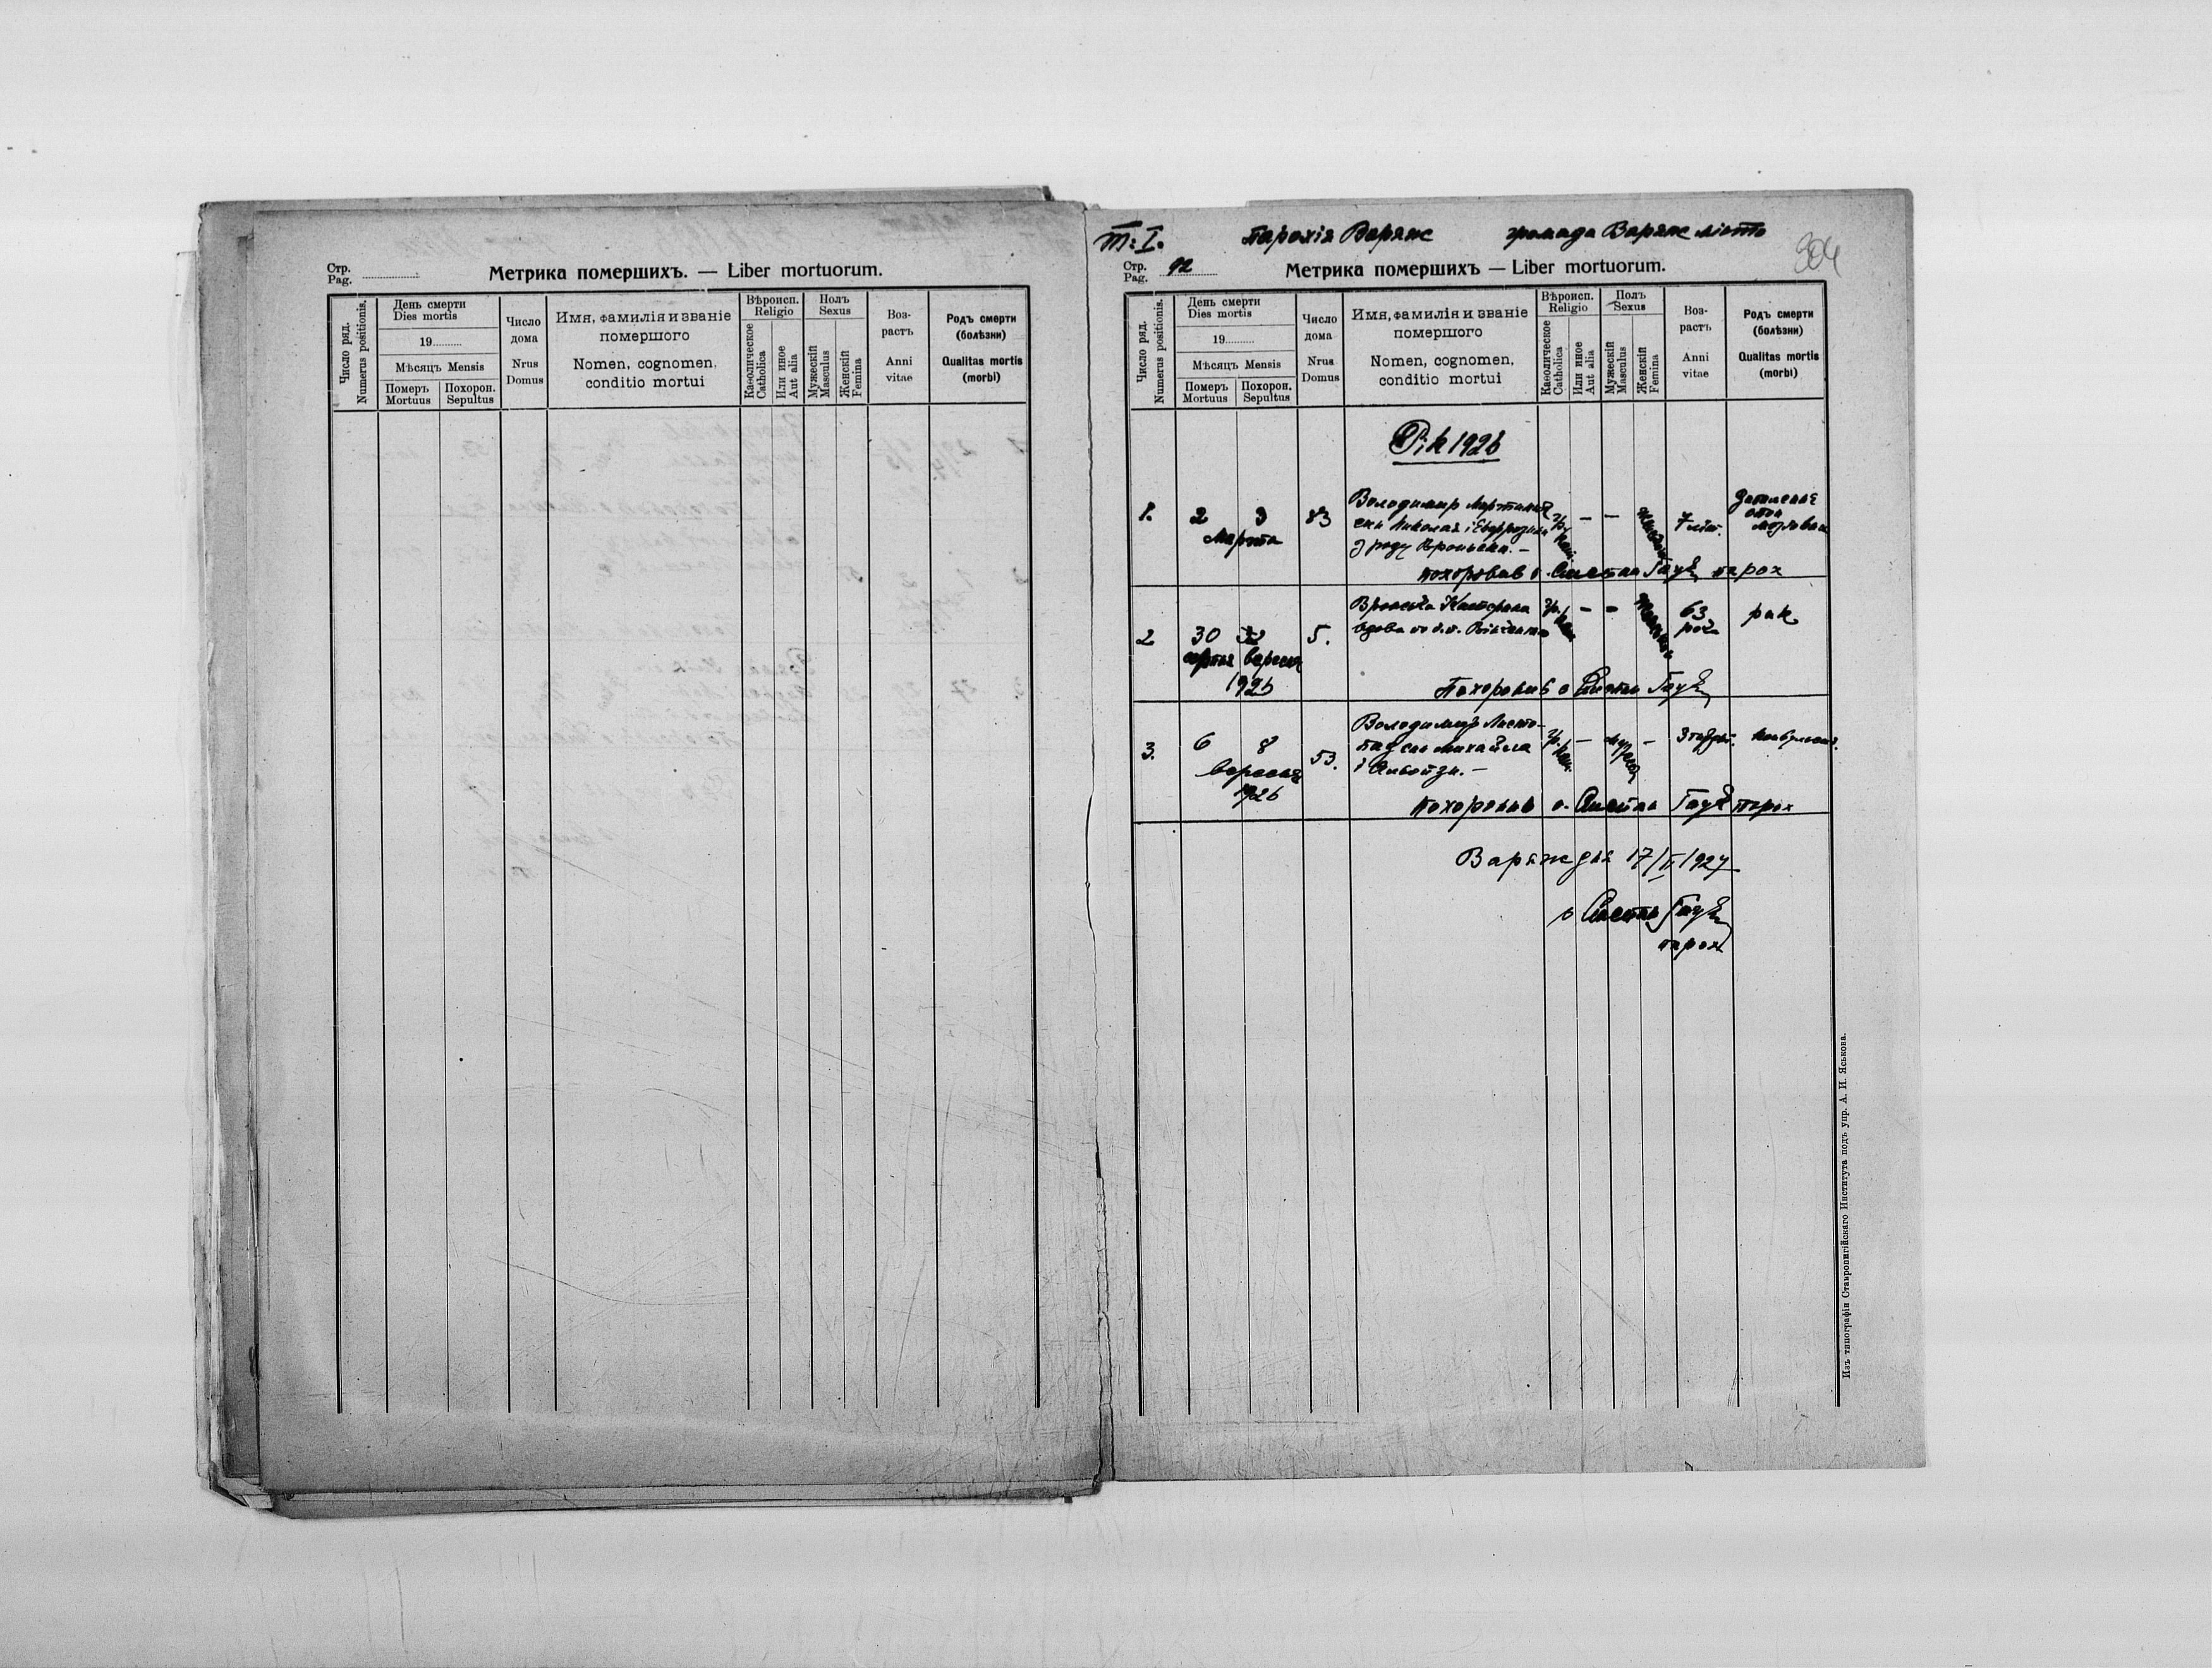 Стр.
Pag.
Метрика помершихъ. — Liber mortuorum.
Число ряд.
Numerus positionis.
День смерти
Dies mortis
19
Мѣсяцъ Mensis
Померъ
Mortuus
Похорон.
Sepultus
Число
дома
Nrus
Domus
Имя, фамилія и званіе
помершого
Nomen, cognomen,
conditio mortui
Вѣроисп.
Religio
Каѳолическое
Catholica
Или иное
Aut alia
Полъ
Sexus
Мужескій
Masculus
Женскій
Femina
Воз-
растъ
Anni
vitae
Родъ смерти
(болѣзни)
Qualitas mortis
(morbi)
Т: I. парохія Варяж громада Варяж місто
304
Стр.
Pag. 92
Метрика помершихъ — Liber mortuorum.
Число ряд.
Numerus positionis.
День смерти
Dies mortis
19
Мѣсяцъ Mensis
Померъ
Mortuus
Похорон.
Sepultus
Число
дома
Nrus
Domus
Имя, фамилія и званіе
помершого
Nomen, cognomen,
conditio mortui
Вѣроисп.
Religio
Каѳолическое
Catholica
Или иное
Aut alia
Полъ
Sexus
Мужескій
Masculus
Женскій
Femina
Воз-
растъ
Anni
vitae
Родъ смерти
(болѣзни)
Qualitas mortis
(morbi)
Рік 1926
1.
2 3
Марта
83
Володимир
син Николая і Евфрозини
з роду
гр. кат.
— —
7 літ.
похоровав о. парох
2
30 серпня вересня
1926
5.
вдова по
гр. кат.
— —
63
рак
Похоронив о
3.
6 8
вересня
1926
53.
Володимир Листо-
пад син Михайла
і
гр. кат.
— —
похоронив о. парох
Варяж дня 17/II 1927
о
парох
Изъ типографіи Ставропигійскаго Института подъ упр. А. И. Яськова.